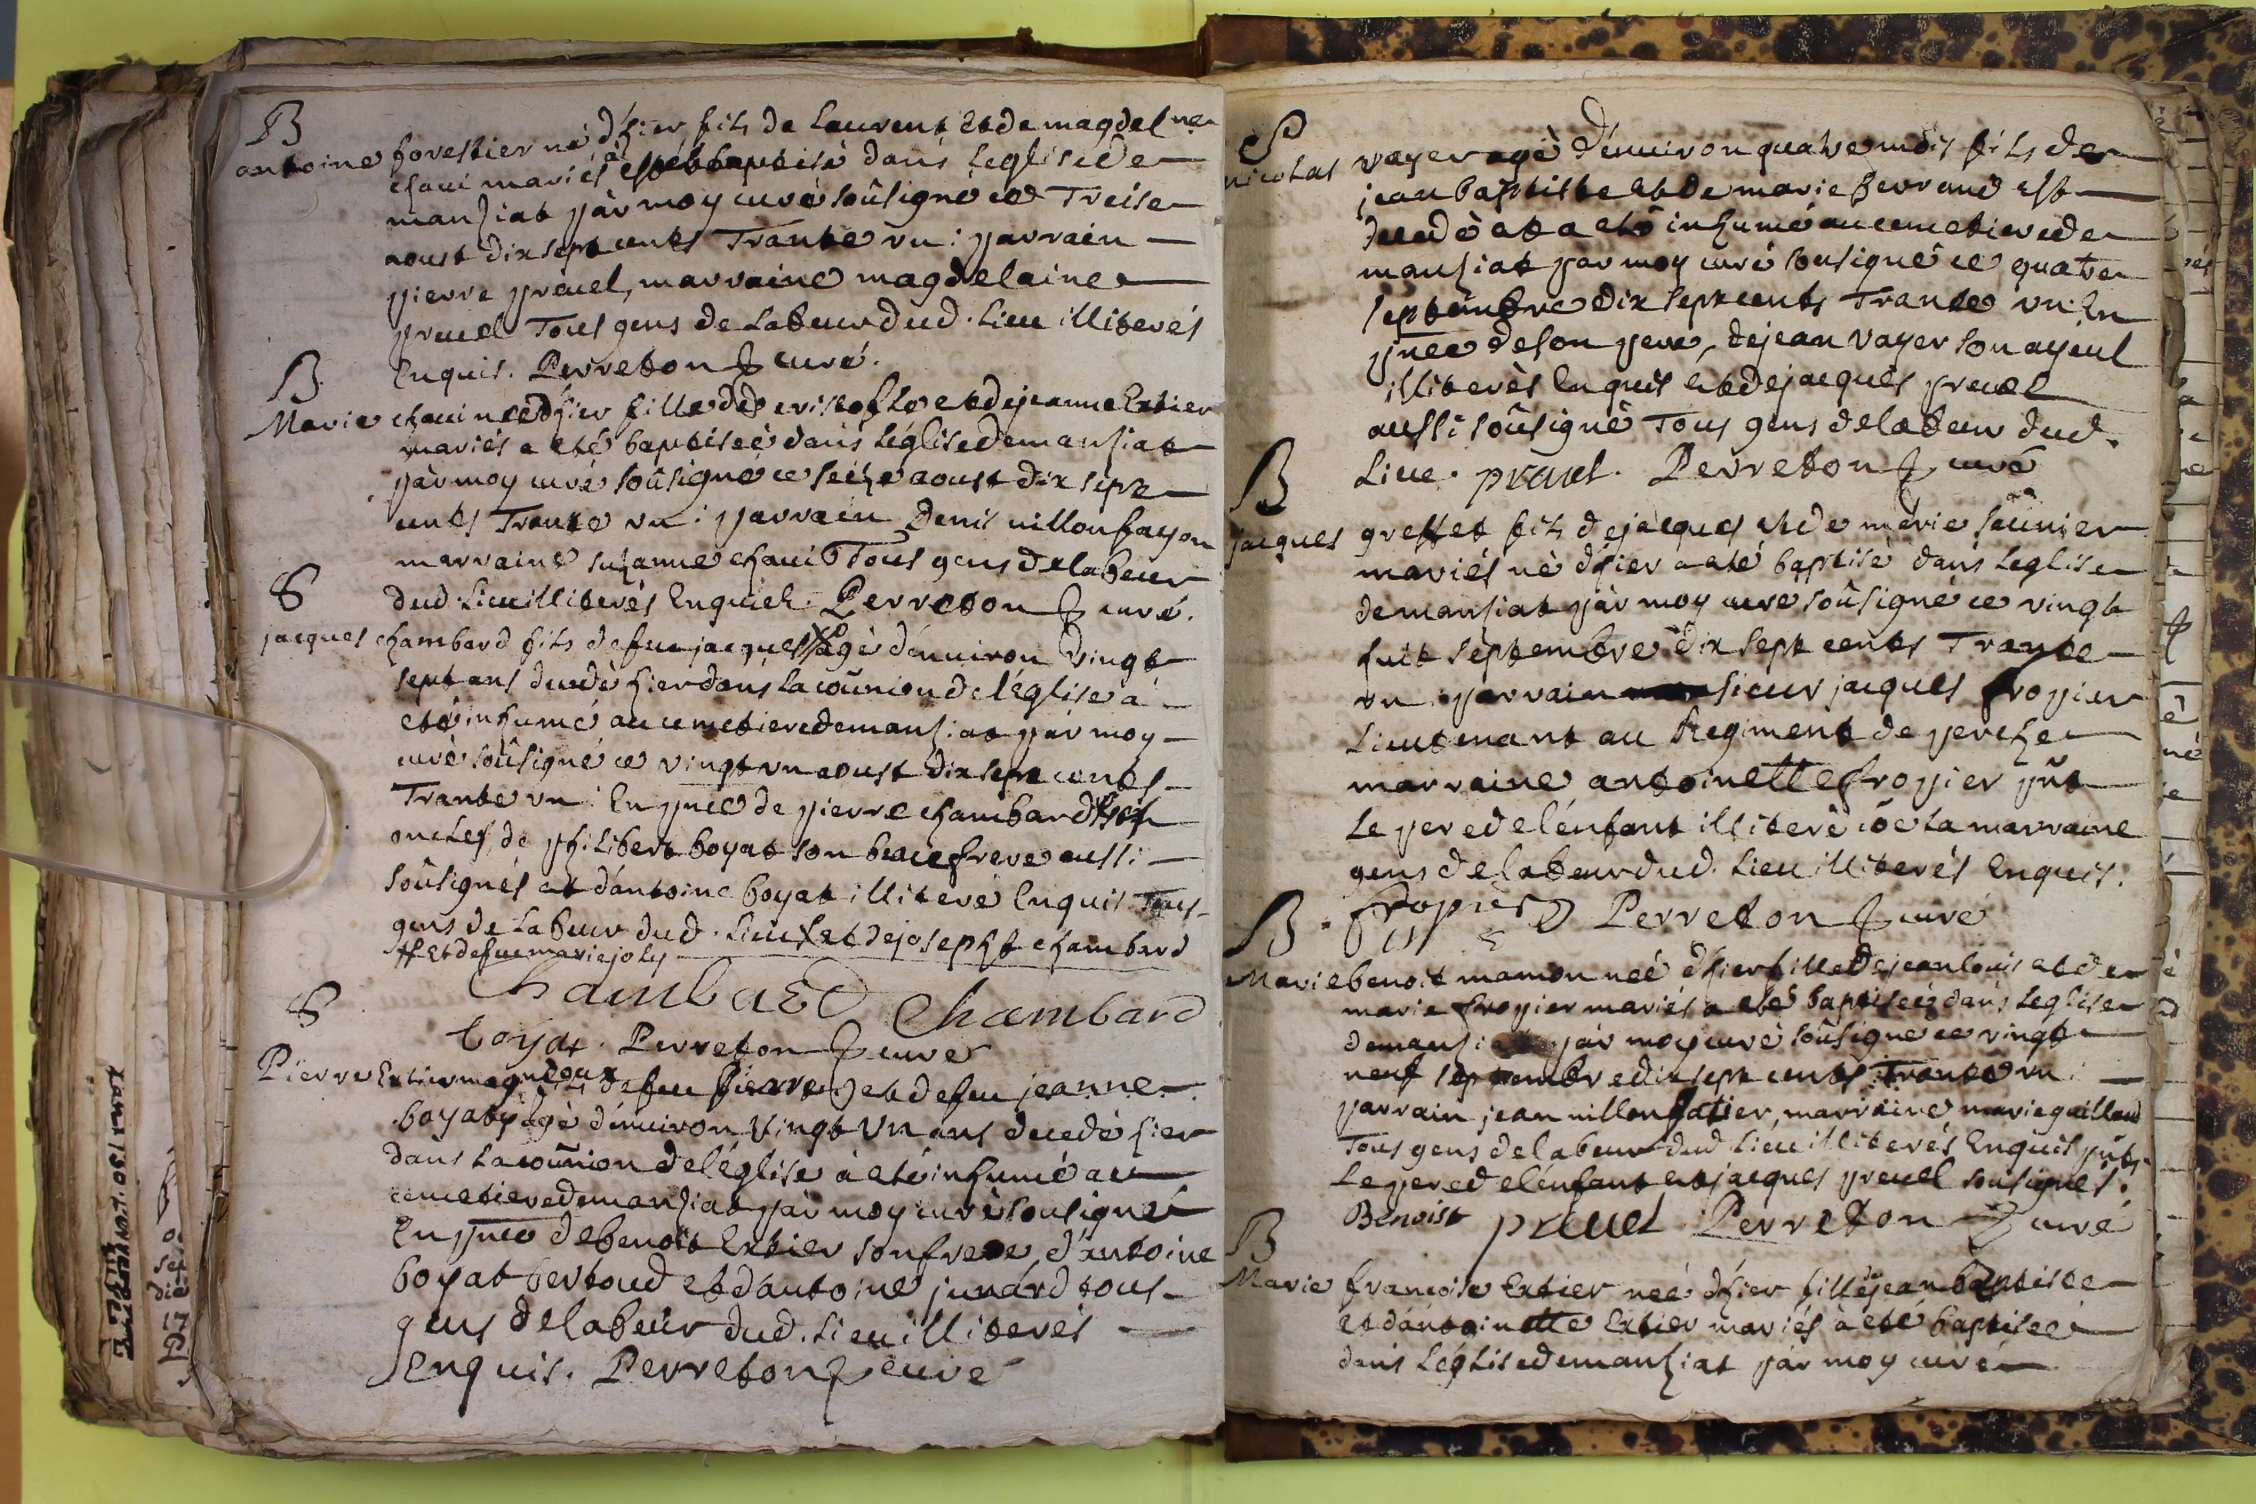 B
antoine forestier né d'hier fils de Laurent et de magdelne
chavi mariés a esté baptisé dans leglise de
manziat par moy curé soûsigné ce Treise
aoust dix sept cents Trante un : parrain
pierre preuel, marraine magdelaine
preuel Tous gens de Labeur dud. Lieu illiterés
Enquis. Perreton curé.
B
Marie chavi neé d'hier fille de cristofle et de jeanne Extier
mariés a eté baptiseè dans L'église de manziat
par moy curé soûsigné ce seize aoust dix sept
cents Trante un : parrain Denis nillon fayon
marraine suzanne chavi Tous gens de labeur
dud. Lieu illiterés Enquis. Perreton curé.
S
jacques chambard fils de feu jacques # agé d'environ vingt
sept ans decedè hier dans la coũnion de l'église à
eté inhumé au cemetiere de manziat par moy
curé soûsigné ce vingt un aoust dix sept cents
Trante un : En pnce de pierre chambard son
oncle, de philibert boyat son beaufrere aussi
soûsignés et d'antoine boyat illiteré Enquis Tous
gens de Labeur dud. Lieu x et de josepht chambard
# et de feue marie joly
Chambard Chambard
boyat. Perreton curé
S
Pierre Extier magnedoux fils de feu Pierre et de feu jeanne
boyat, agè d'environ vingt un ans decedé hier
dans La coũnion de l'église à eté inhumé au
cemetiere de manziat par moy curè soûsigné
En pnce de benoit Extier son frere d'antoine
boyat bertoud et d'antoine junard tous
gens de labeur dud. Lieu illiterés
Enquis. Perreton curé
S
nicolas vayer agè d'environ quatre mois fils de
jean baptiste et de marie ferrand est
decedè et a eté inhumé au cemetiere de
manziat par moy curé soûsigné ce quatre
septembre dix sept cents Trante un: En
pnce de son pere, de jean vayer son ayeul
illiterès Enquis et de jacques preuel
aussi soûsigné Tous gens de labeur dud.
Lieu. preuel. Perreton curé
B
jacques greffet fils de jacques et de marie saunier
mariés né d'hier a eté baptisé dans L'eglise
de manziat par moy curé soûsigné ce vingt
huit septembre dix sept cents Trante
un parrain sieur jacques fropier
Lieutenant au Regiment de perche
marraine antoinette fropier pñt
Le pere de l'énfant illiterè cõe La marraine
gens de labeur dud. Lieu illiterés Enquis.
fropier Perreton curé
B
Marie benoit mamon neé d'hier fille de jean louis et de
marie fropier mariés a eté baptiseé dans L'eglise
de manziat par moy curé soûsigné ce vingt
neuf septembre dix sept cents Trante un :
parrain jean nillon gatier, marraine marie guilland
Tous gens de labeur dud. Lieu illiterés Enquis pñts
Le pere de l'énfant et jacques preuel soûsignés.
Benoist preuel Perreton curé
B
Marie francoise Extier neé d'hier fille jean baptiste
et d'ántoinette Extier mariés à eté baptiseé
dans L'église de manziat par moy curé